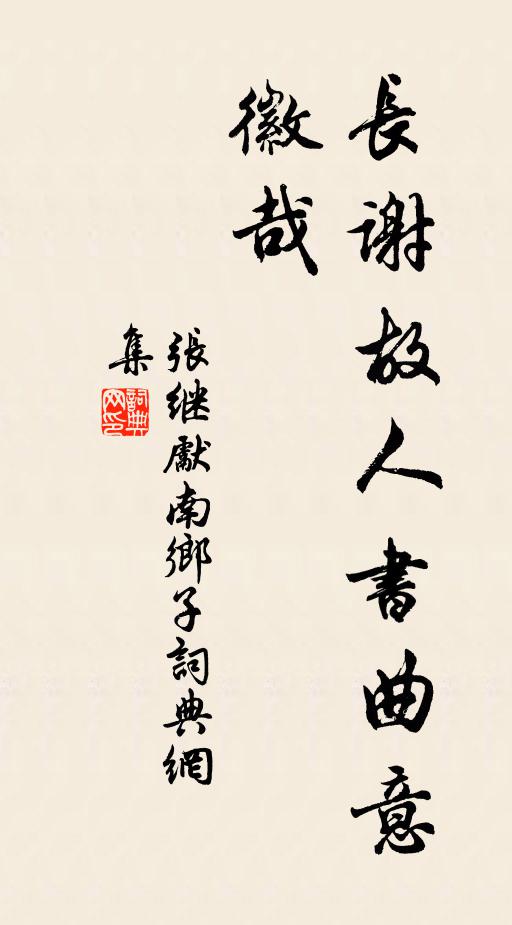 長謝故人書曲意
徽哉
張继獻南鄉子詞典網
集
詞典
网印